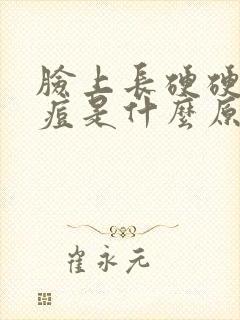 臉上長硬硬
痘是什麼原
崔永元